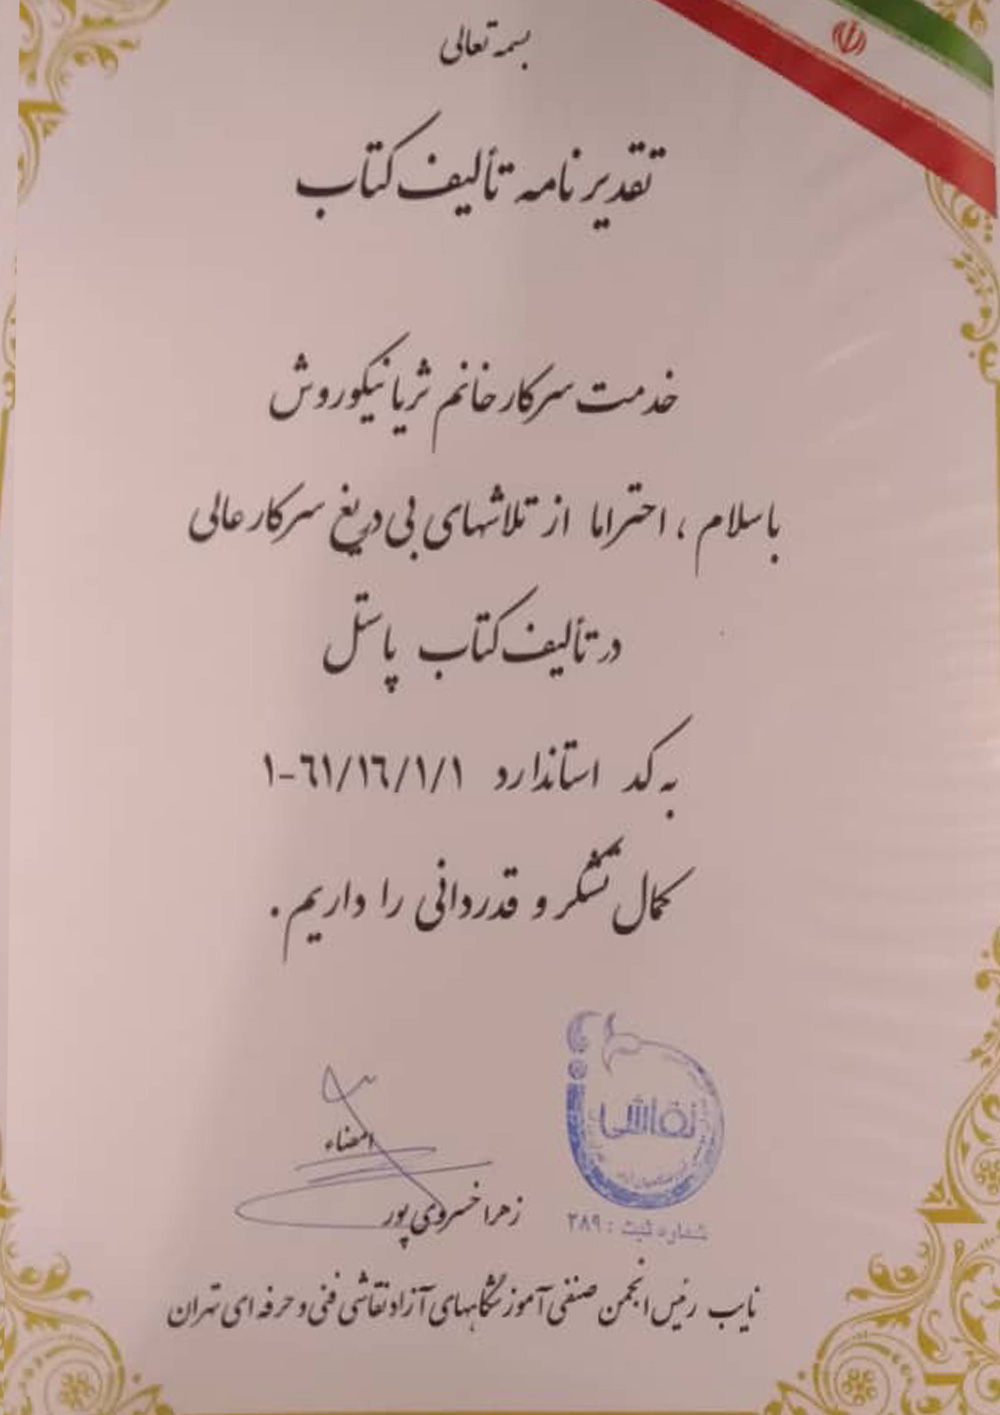 بسمه تعالی
تقدیر نامه تألیف کتاب
خدمت سرکار خانم ثریا نیکوروش
با سلام ، احتراما از تلاشهای بی دریغ سرکار عالی
در تألیف کتاب پاستل
به کد استاندارد ۱-۶۱/۱۶/۱/۱
کمال تشکر و قدردانی را داریم .
نقاشی
شماره ثبت : ۲۸۹
امضاء
زهرا خسروی پور
نایب رئیس انجمن صنفی آموزشگاههای آزاد نقاشی فنی و حرفه ای تهران